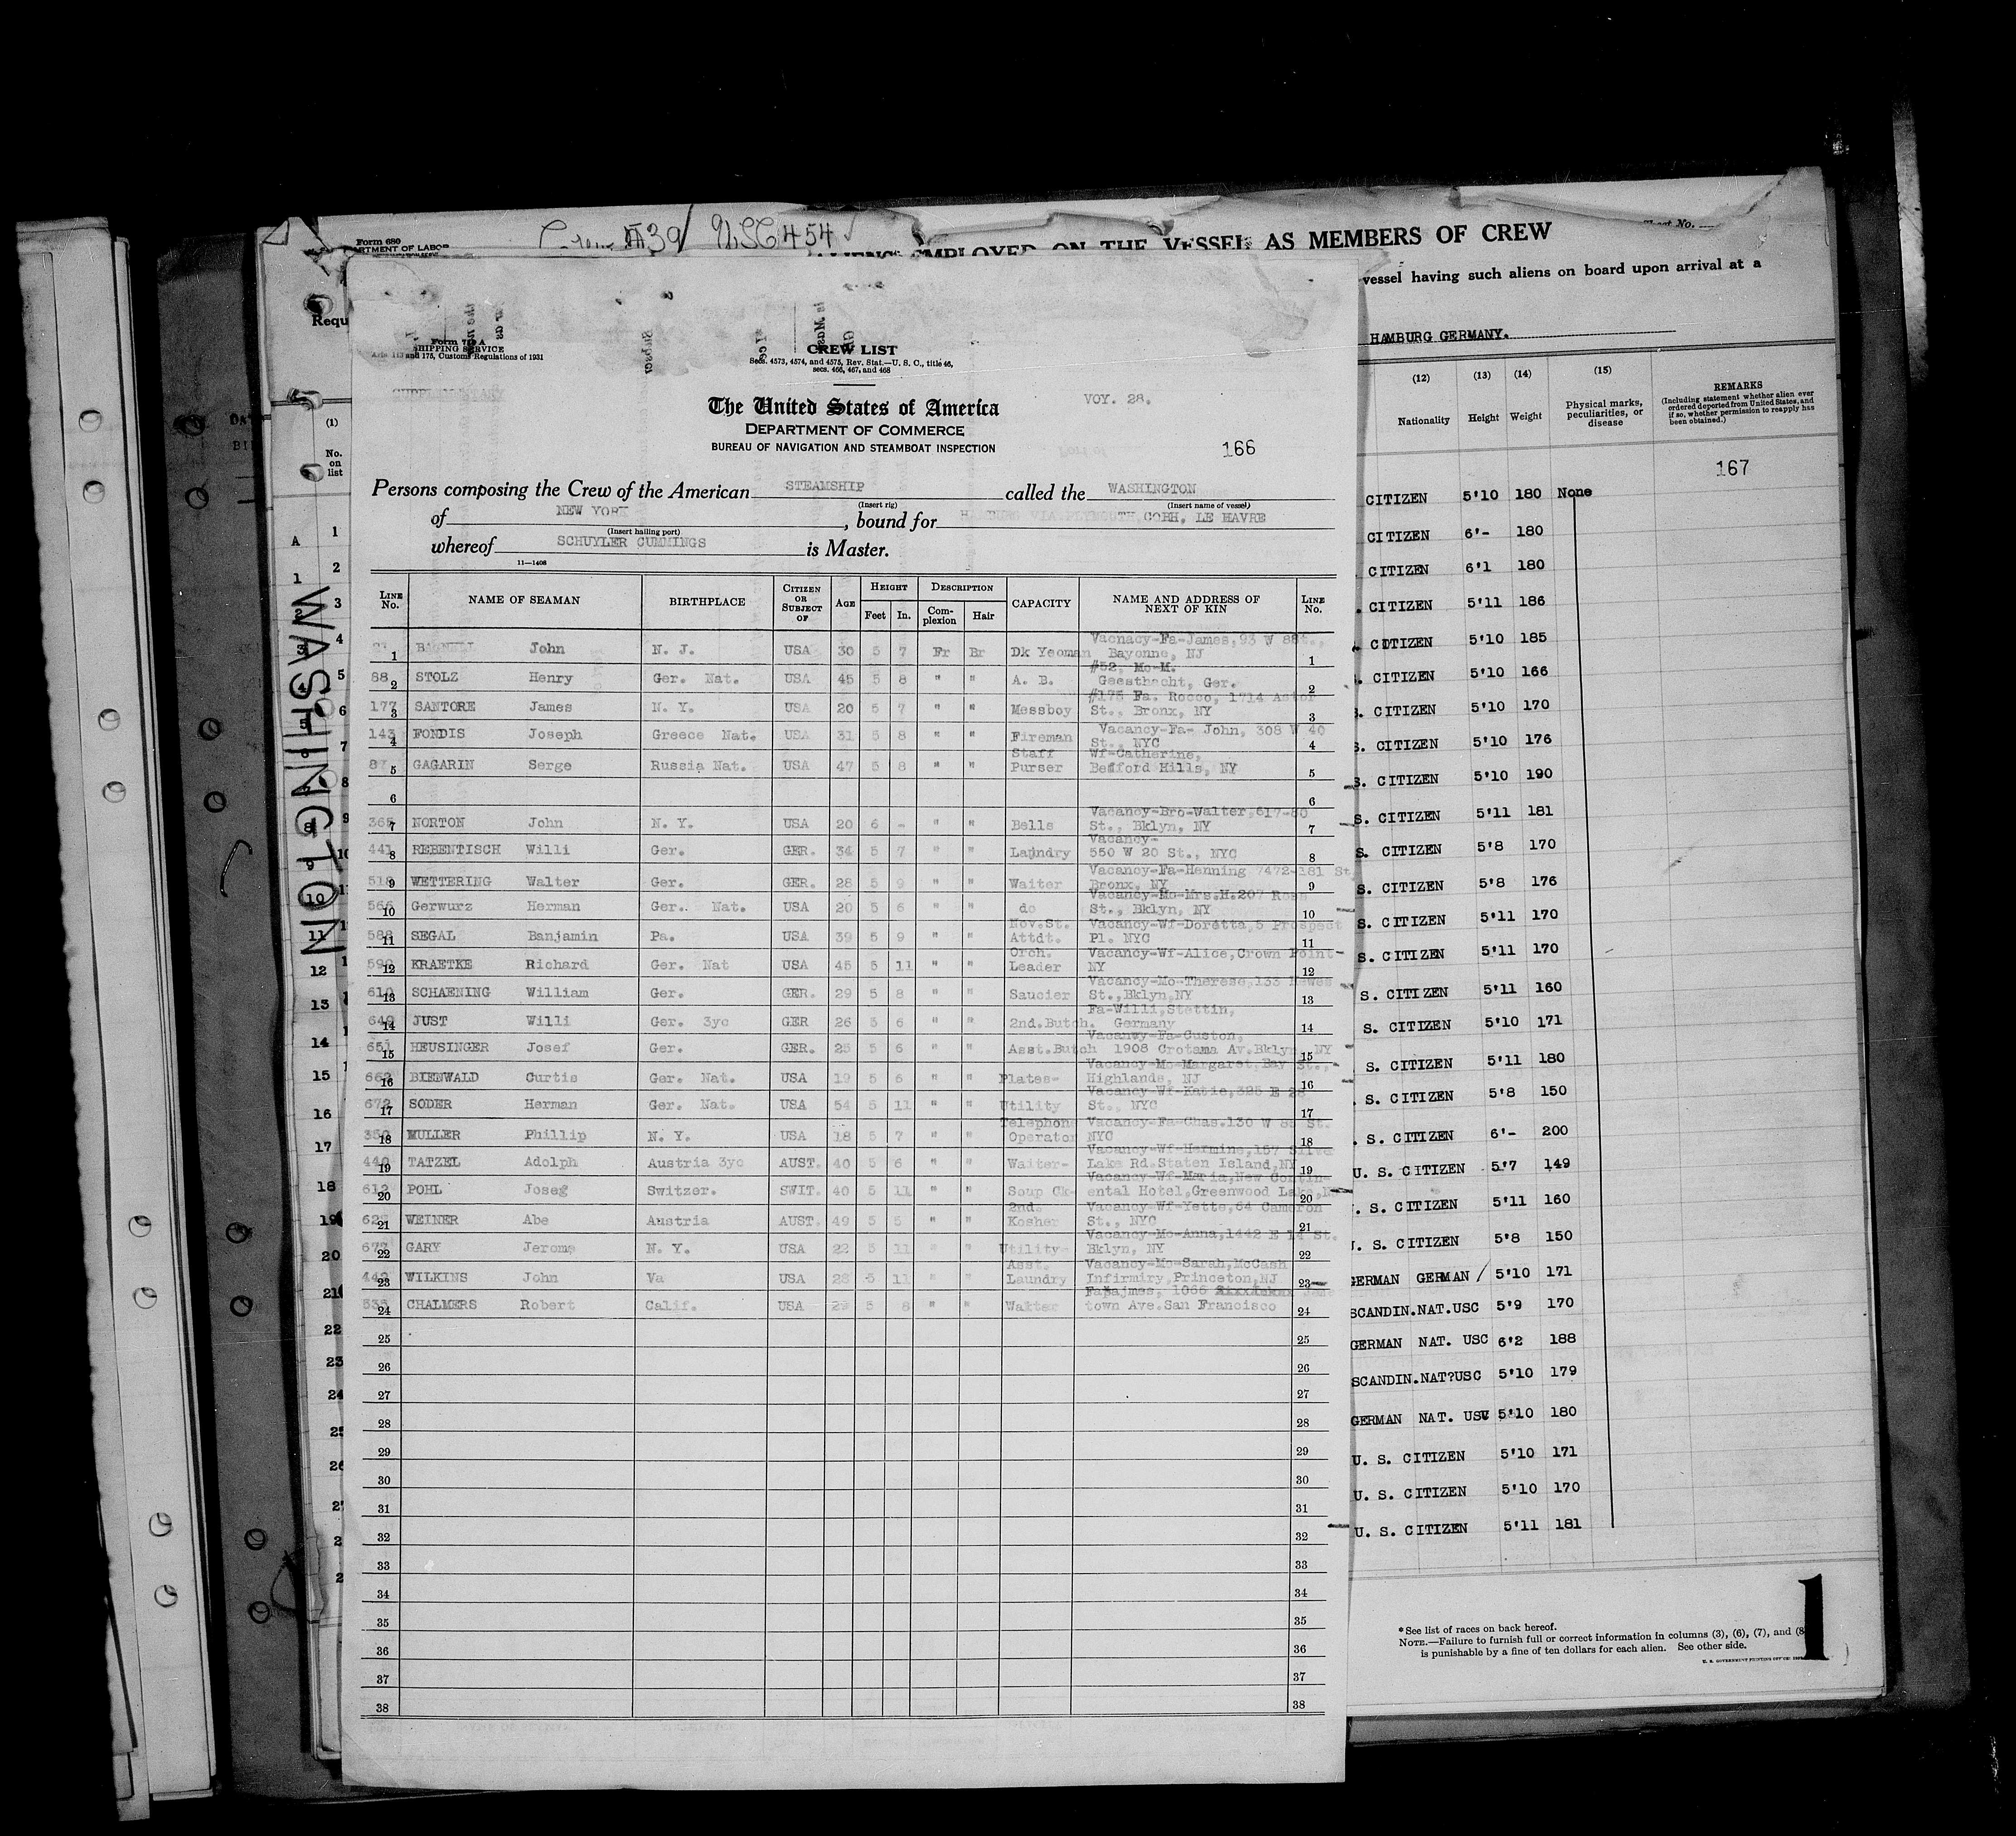 Form 680
Crew 39 USC 454
ALIENS EMPLOYED ON THE VESSEL AS MEMBERS OF CREW
vessel having such aliens on board upon arrival at a
Requ
HAMBURG GERMANY.
Form 710 A
SHIPPING SERVICE
Arts. 113 and 175, Customs Regulations of 1931
SUPPLEMENTARY
CREW LIST
Secs. 4573, 4574, and 4575, Rev. Stat.—U. S. C., title 46,
secs. 466, 467, and 468
The United States of America
DEPARTMENT OF COMMERCE
BUREAU OF NAVIGATION AND STEAMBOAT INSPECTION
VOY. 28.
166
Persons composing the Crew of the American STEAMSHIP called the WASHINGTON
(Insert rig) (Insert name of vessel)
of NEW YORK, bound for HAMBURG VIA PLYMOUTH, COBH, LE HAVRE
(Insert hailing port)
whereof SCHUYLER CUMMINGS is Master.
11—1408
LINE No. NAME OF SEAMAN BIRTHPLACE CITIZEN OR SUBJECT OF AGE HEIGHT Feet In. DESCRIPTION Complexion Hair CAPACITY NAME AND ADDRESS OF NEXT OF KIN LINE No.
1 John N. J. USA 30 5 7 Fr Br Dk Yeoman Vacnacy-Fa-James, 93 W 88 Bayonne, NJ 1
88 2 STOLZ Henry Ger. Nat. USA 45 5 8 " " A. B. #52, Mo-M. Geesthacht, Ger. 2
177 3 SANTORE James N. Y. USA 20 5 7 " " Messboy #175 Fa. Rocco, 1714 Astor St., Bronx, NY 3
143 4 FONDIS Joseph Greece Nat. USA 31 5 8 " " Fireman Vacancy-Fa- John, 308 W 40 St., NYC 4
5 GAGARIN Serge Russia Nat. USA 47 5 8 " " Staff Purser Wf-Catherine, Bedford Hills, NY 5
6 6
7 NORTON John N. Y. USA 20 6 - " " Bells Vacancy-Bro-Walter, 617-80 St., Bklyn, NY 7
441 8 REBENTISCH Willi Ger. GER. 34 5 7 " " Laundry Vacancy- 550 W 20 St., NYC 8
9 WETTERING Walter Ger. GER. 28 5 9 " " Waiter Vacancy-Fa-Henning 7472-181 St Bronx, NY 9
566 10 Gerwurz Herman Ger. Nat. USA 20 5 6 " " do Vacancy-Mo-Mrs.H.207 Ross St., Bklyn, NY 10
588 11 SEGAL Banjamin Pa. USA 39 5 9 " " Nov.St. Attdt. Vacancy-Wf-Doretta,5 Prospect Pl. NYC 11
12 KRAETKE Richard Ger. Nat USA 45 5 11 " " Orch. Leader Vacancy-Wf-Alice,Crown Point- NY 12
13 SCHAENING William Ger. GER. 29 5 8 " " Saucier Vacancy-Mo-Therese,133 Hewes St.,Bklyn,NY 13
14 JUST Willi Ger. 3yc GER 26 5 6 " " 2nd.Butch. Fa-Willi,Stettin, Germany 14
651 15 HEUSINGER Josef Ger. GER. 25 5 6 " " Asst.Butch Vacancy-Fa-Custon, 1908 Crotama Av.Bklyn NY 15
16 BIENWALD Curtis Ger. Nat. USA 19 5 6 " " Plates- Vacancy-Mo-Margaret,Bay St., Highlands, NJ 16
672 17 SODER Herman Ger. Nat. USA 54 5 11 " " Utility Vacancy-Wf-Katie,325 E 28 St., NYC 17
18 MULLER Phillip N. Y. USA 18 5 7 " " Telephone Operator Vacancy-Fa-Chas.130 W 85 St. NYC 18
19 TATZEL Adolph Austria 3yc AUST. 40 5 6 " " Waiter- Vacancy-Wf-Hermine,157 Silve Lake Rd.Staten Island,NY 19
612 20 POHL Joseg Switzer. SWIT. 40 5 11 " " Soup Ck- Vacancy-Wf-Maria,New Contin- ental Hotel,Greenwood Lake, 20
21 WEINER Abe Austria AUST. 49 5 5 " " 2nd. Kosher Vacancy-Wf-Yette,64 Cameron St., NYC 21
22 GARY Jerome N. Y. USA 22 5 11 " " Utility- Vacancy-Mo-Anna,1442 E 14 St. Bklyn, NY 22
23 WILKINS John Va USA 28 5 11 " " Asst. Laundry Vacancy-Mo-Sarah,McCash Infirmiry,Princeton,NJ 23
24 CHALMERS Robert Calif. USA 5 8 " " Waiter Fapajmes, 1066 town Ave.San Francisco 24
25 25
26 26
27 27
28 28
29 29
30 30
31 31
32 32
33 33
34 34
35 35
36 36
37 37
38 38
WASHINGTON
(1)
No. on list
(12) (13) (14) (15)
Nationality Height Weight Physical marks, peculiarities, or disease
REMARKS
(Including statement whether alien ever ordered deported from United States, and if so, whether permission to reapply has been obtained.)
167
CITIZEN 5'10 180 None
CITIZEN 6'- 180
CITIZEN 6'1 180
CITIZEN 5'11 186
CITIZEN 5'10 185
. CITIZEN 5'10 166
. CITIZEN 5'10 170
S. CITIZEN 5'10 176
S. CITIZEN 5'10 190
S. CITIZEN 5'11 181
S. CITIZEN 5'8 170
S. CITIZEN 5'8 176
S. CITIZEN 5'11 170
S. CITIZEN 5'11 170
S. CITIZEN 5'11 160
S. CITIZEN 5'10 171
S. CITIZEN 5'11 180
. S. CITIZEN 5'8 150
. S. CITIZEN 6'- 200
U. S. CITIZEN 5'7 149
. S. CITIZEN 5'11 160
. S. CITIZEN 5'8 150
GERMAN GERMAN / 5'10 171
SCANDIN.NAT.USC 5'9 170
GERMAN NAT. USC 6'2 188
SCANDIN.NAT?USC 5'10 179
GERMAN NAT. USC 5'10 180
U. S. CITIZEN 5'10 171
U. S. CITIZEN 5'10 170
U. S. CITIZEN 5'11 181
*See list of races on back hereof.
NOTE.—Failure to furnish full or correct information in columns (3), (6), (7), and (8
is punishable by a fine of ten dollars for each alien. See other side.
U. S. GOVERNMENT PRINTING OFFICE
1